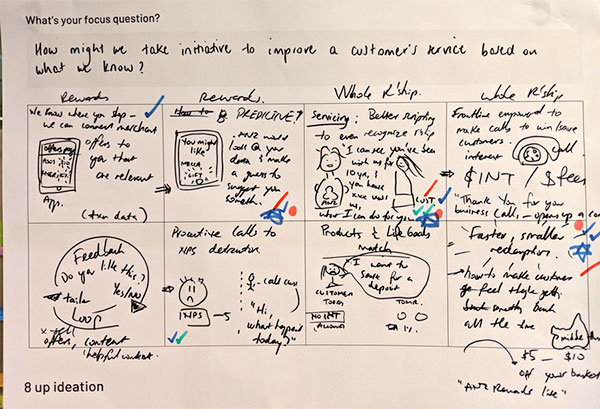 What's your focus question?
How might we take initiative to improve a customer's service based on
what we know?
Rewards
We know where you shop –
we can connect merchant
offers to
you that
are relevant
App.
(txn data)
Rewards.
PREDICTIVE?
You might
like
MECCA
GIFT
ANZ would
look @ your
data & make
a guess to
suggest you
something.
Whole R'ship.
Servicing: Better scripting
to even recognize r'ship
I can see you've been
with us for
10 yrs, &
you have
xxx with
us,
CUST
what I can do for you
Whole R'ship
Frontline empowered to
make calls to win/save
customers.
call
interest
$INT / $fees
"Thank you for your
business calls – opens up a
Feedback
Do you like this?
Yes/No
tailor
Loop
offers, content
"helpful content.
Proactive Calls to
NPS detractors
INPS
– 5
call cust
"Hi,
what happened
today?"
Products & Life Goals
match
I want to
save for a
deposit
CUSTOMER
TODAY
NO INT
Faster, smaller
redemption.
how to make customer
feel they're getting
back
all the time
$5 – $10
off your basket
"ANZ Rewards like"
8 up ideation